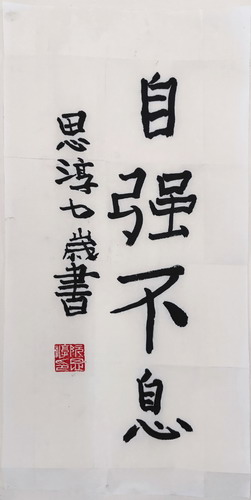 自强不息
思淳七歲書